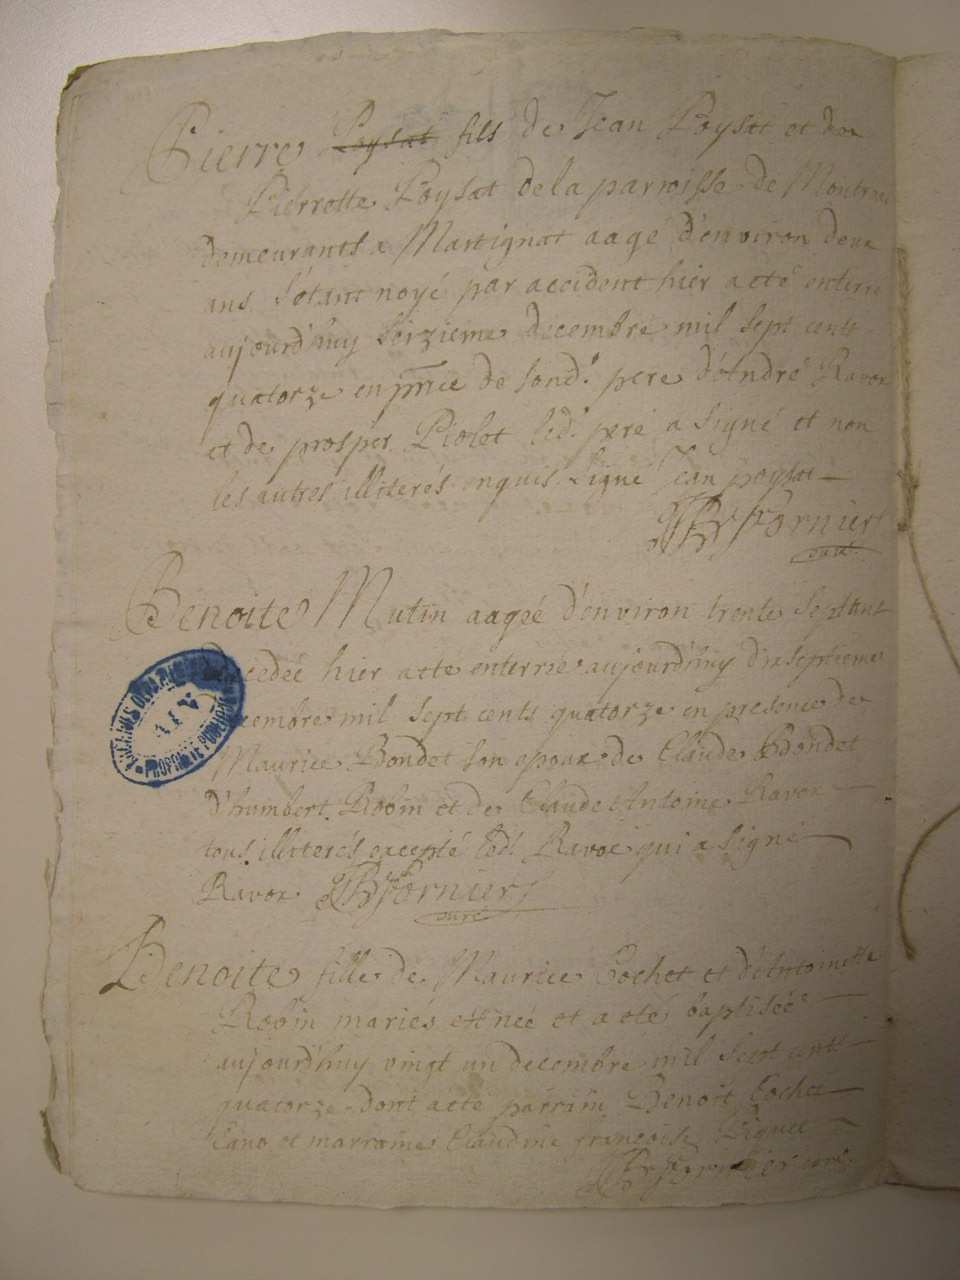 Pierre Poysat fils de Jean Poysat et de
Pierrette Poysat de la parroisse de
demeurants a Martignat aagé d'environ deux
ans s'étant noyé par accident hier a eté enterré
aujourd'huy seizieme decembre mil sept cents
quatorze en pnce de sond. pere d'André Ravoz
et de prosper Piolet led. pere a signé et non
les autres illiterés enquis signé Jean poysat
Fornier
curé
Benoite Mutin aageé d'environ trente sept ans
decedeé hier a eté enterrie aujourd'huy dix septieme
decembre mil sept cents quatorze en presence de
Maurice Bondet son epoux de Claude Bondet
d'humbert Robin et de Claude Antoine Ravoz
tous illiterés excepté led. Ravoz qui a signé
Ravoz Fornier
curé
Benoite fille de Maurice Cochet et d'Antoinette
Robin mariés est neé et a eté baptiseé
aujourd'huy vingt un decembre mil sept cents
quatorze dont acte parrin Benoit Cochet
et marraine Claudine françoise
Fornier curé
AIN